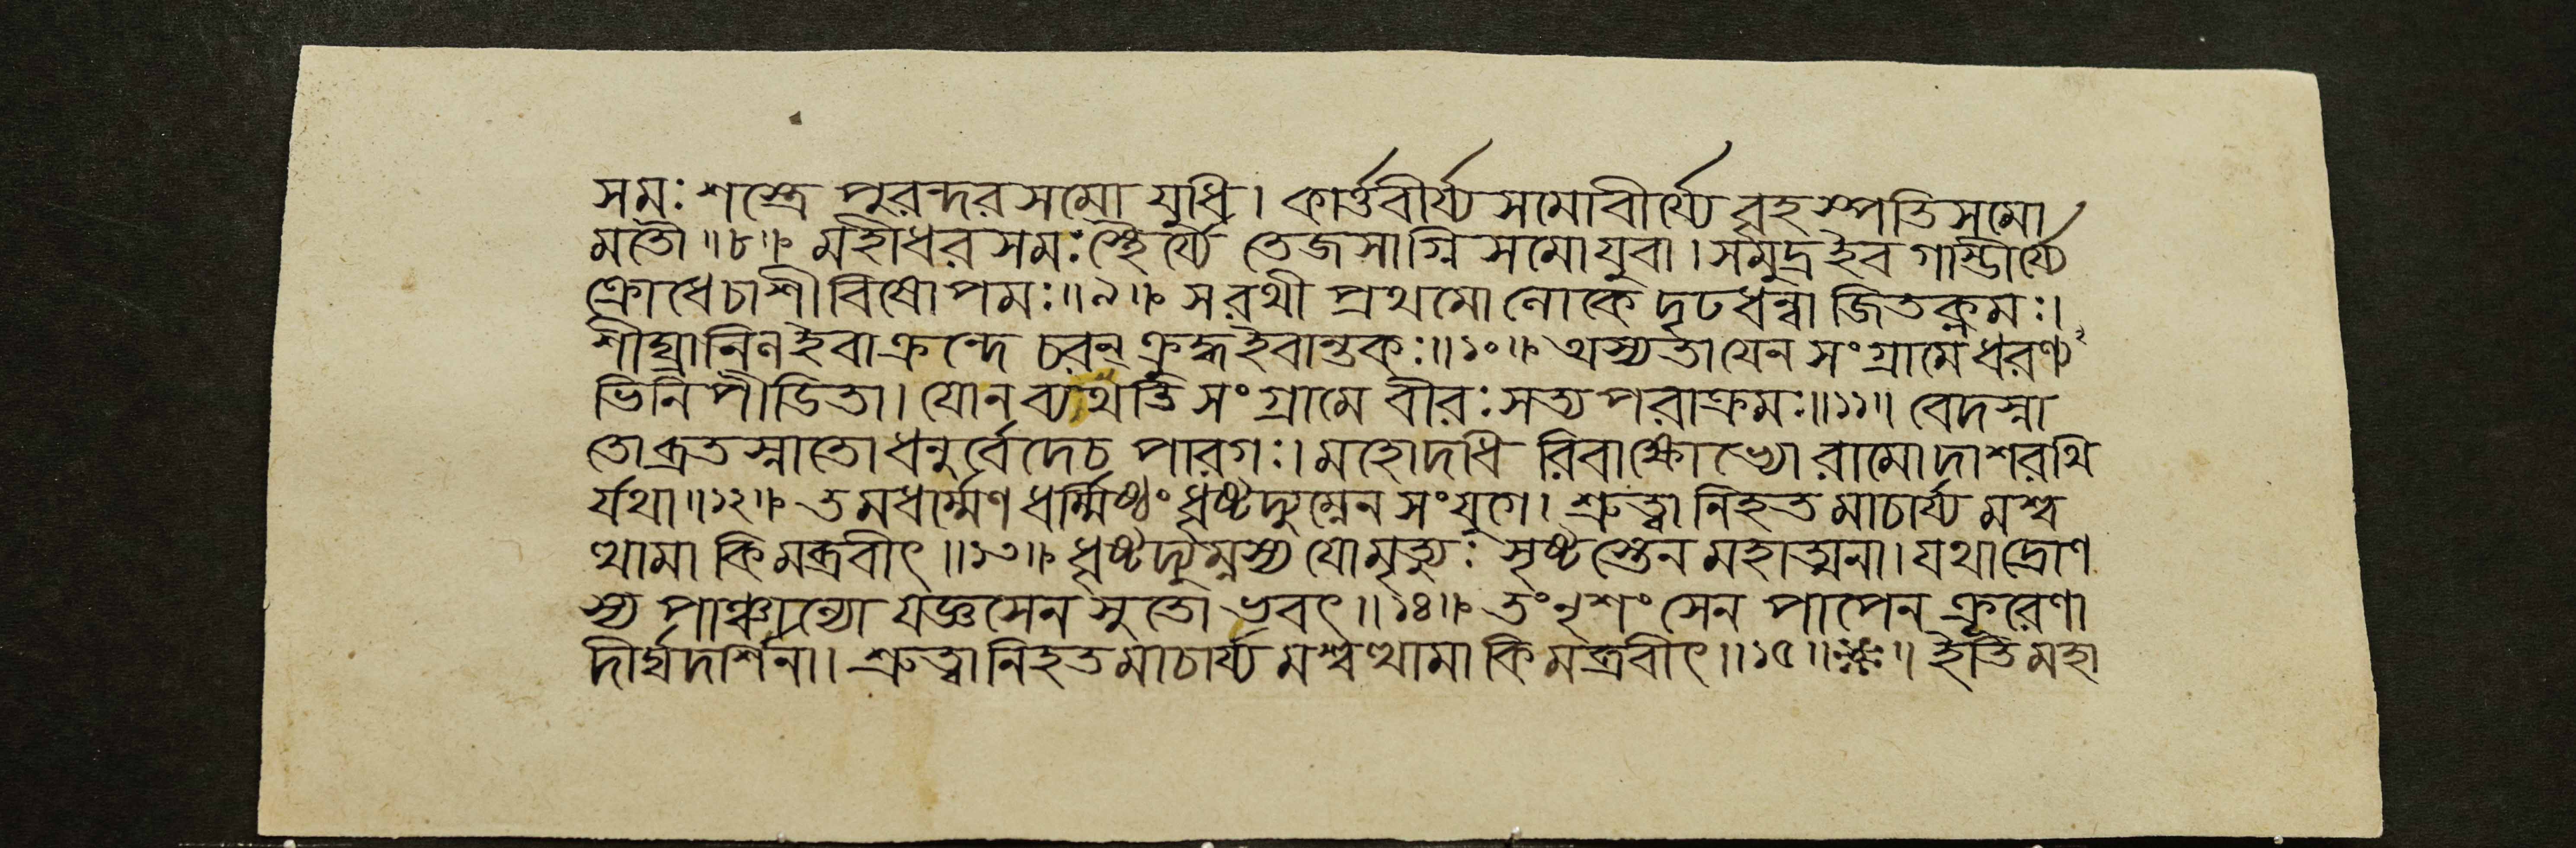 সমঃ শস্ত্রে পুরন্দরসমো যুধি। কার্ত্তবীর্য্য সমোবীর্য্যে বৃহস্পতিসমো
মতৌ॥৮॥ মহীধরসমঃস্থৈর্য্যে তেজসাগ্নিসমোযুবা। সমুদ্রইব গাম্ভীর্য্যে
ক্রোধেচাশীবিষোপমঃ॥৯॥ সরথী প্রথমো লোকে দৃঢধন্বা জিতক্লমঃ।
শীঘ্রোনিলইবাক্রন্দে চরন্ ক্রুদ্ধইবান্তকঃ॥১০॥ অস্যতাযেন সংগ্রামে ধরণ্য
ভিনিপীডিতা। যোনব্যথতি সংগ্রামে বীরঃ সত্যপরাক্রমঃ॥১১॥ বেদস্না
তোব্রতস্নাতো ধনুর্বেদেচ পারগঃ। মহোদধি রিবাক্ষোভ্যো রামোদাশরথি
র্যথা॥১২॥ তমধর্ম্মেণধর্ম্মিষ্ঠং ধৃষ্টদ্যুম্নেন সংযুগে। শ্রুত্বানিহতমাচার্য্য মশ্ব
ত্থামা কিমব্রবীৎ॥১৩॥ ধৃষ্টদ্যুম্নস্য যোমৃত্যুঃ সৃষ্টস্তেন মহাত্মনা। যথাদ্রোণ
স্য পাঞ্চাল্যো যজ্ঞসেন সুতো ভবৎ॥১৪॥ তংনৃশংসেন পাপেন ক্রূরেণা
দীর্ঘদর্শিনা। শ্রুত্বানিহতমাচার্য্য মশ্বত্থামা কিমব্রবীৎ॥১৫॥ ॥ ইতিমহা